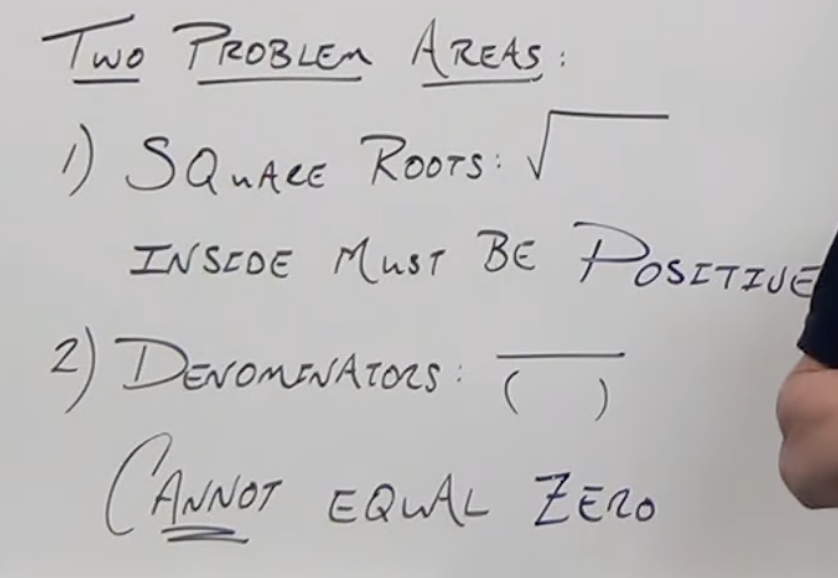 TWO PROBLEM AREAS:
1) SQUARE ROOTS: √
INSIDE MUST BE POSITIVE
2) DENOMINATORS: ( )
CANNOT EQUAL ZERO